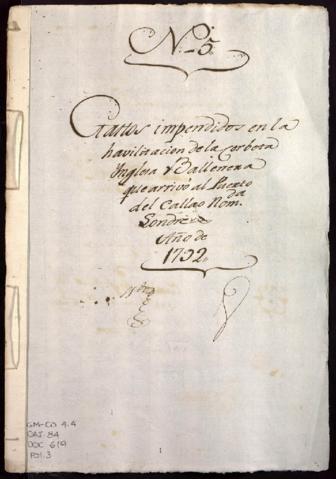 N. 5.
Gastos impendidos en la
havilitacion de la Corbeta
Ynglesa y Ballenera
que arrivó al Puerto
del Callao Nom.da
Londres
Año de
1792.
GM-CO 4.4
CAJ. 84
DOC 619
FOL 3